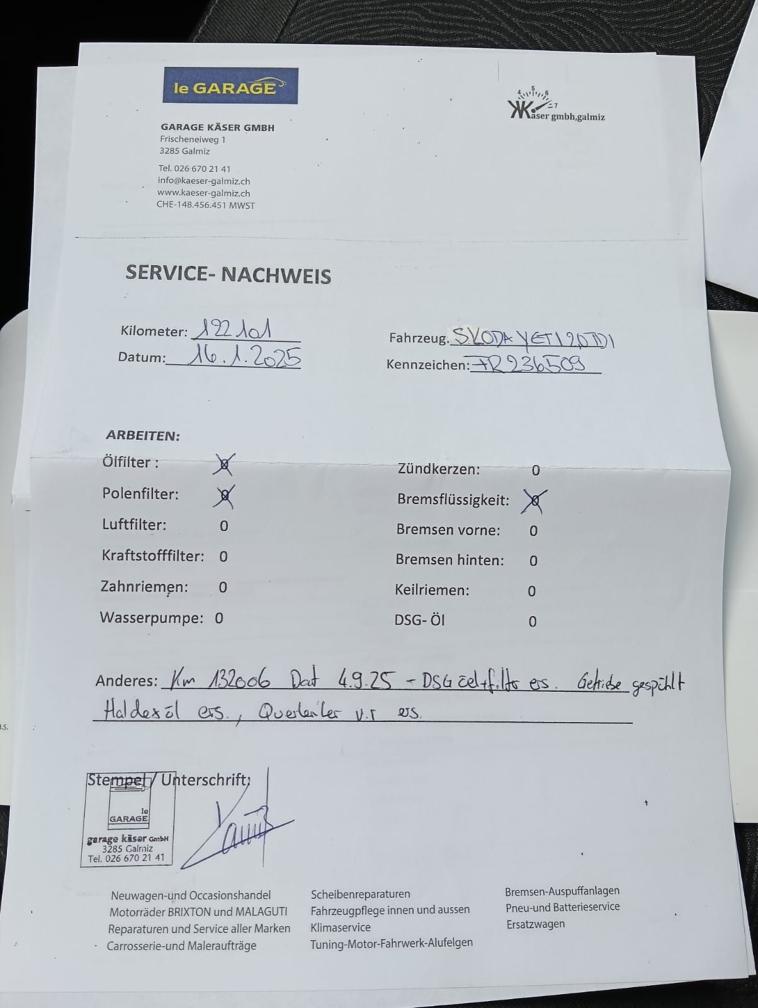 le GARAGE
Käser gmbh,galmiz
GARAGE KÄSER GMBH
Frischeneiweg 1
3285 Galmiz
Tel. 026 670 21 41
info@kaeser-galmiz.ch
www.kaeser-galmiz.ch
CHE-148.456.451 MWST
SERVICE- NACHWEIS
Kilometer: 122101
Datum: 16.1.2025
Fahrzeug: SKODA YETI 2.0 TDI
Kennzeichen: FR 236509
ARBEITEN:
Ölfilter :
Polenfilter:
Luftfilter: 0
Kraftstofffilter: 0
Zahnriemen: 0
Wasserpumpe: 0
Zündkerzen: 0
Bremsflüssigkeit:
Bremsen vorne: 0
Bremsen hinten: 0
Keilriemen: 0
DSG- Öl 0
Anderes: Km 132006 Dat 4.9.25 - DSG oel+filter ers. Getriebe gespühlt
Haldexöl ers., Querlenker v.r ers.
Stempel / Unterschrift:
le
GARAGE
garage käser GmbH
3285 Galmiz
Tel. 026 670 21 41
Neuwagen-und Occasionshandel
Motorräder BRIXTON und MALAGUTI
Reparaturen und Service aller Marken
Carrosserie-und Maleraufträge
Scheibenreparaturen
Fahrzeugpflege innen und aussen
Klimaservice
Tuning-Motor-Fahrwerk-Alufelgen
Bremsen-Auspuffanlagen
Pneu-und Batterieservice
Ersatzwagen